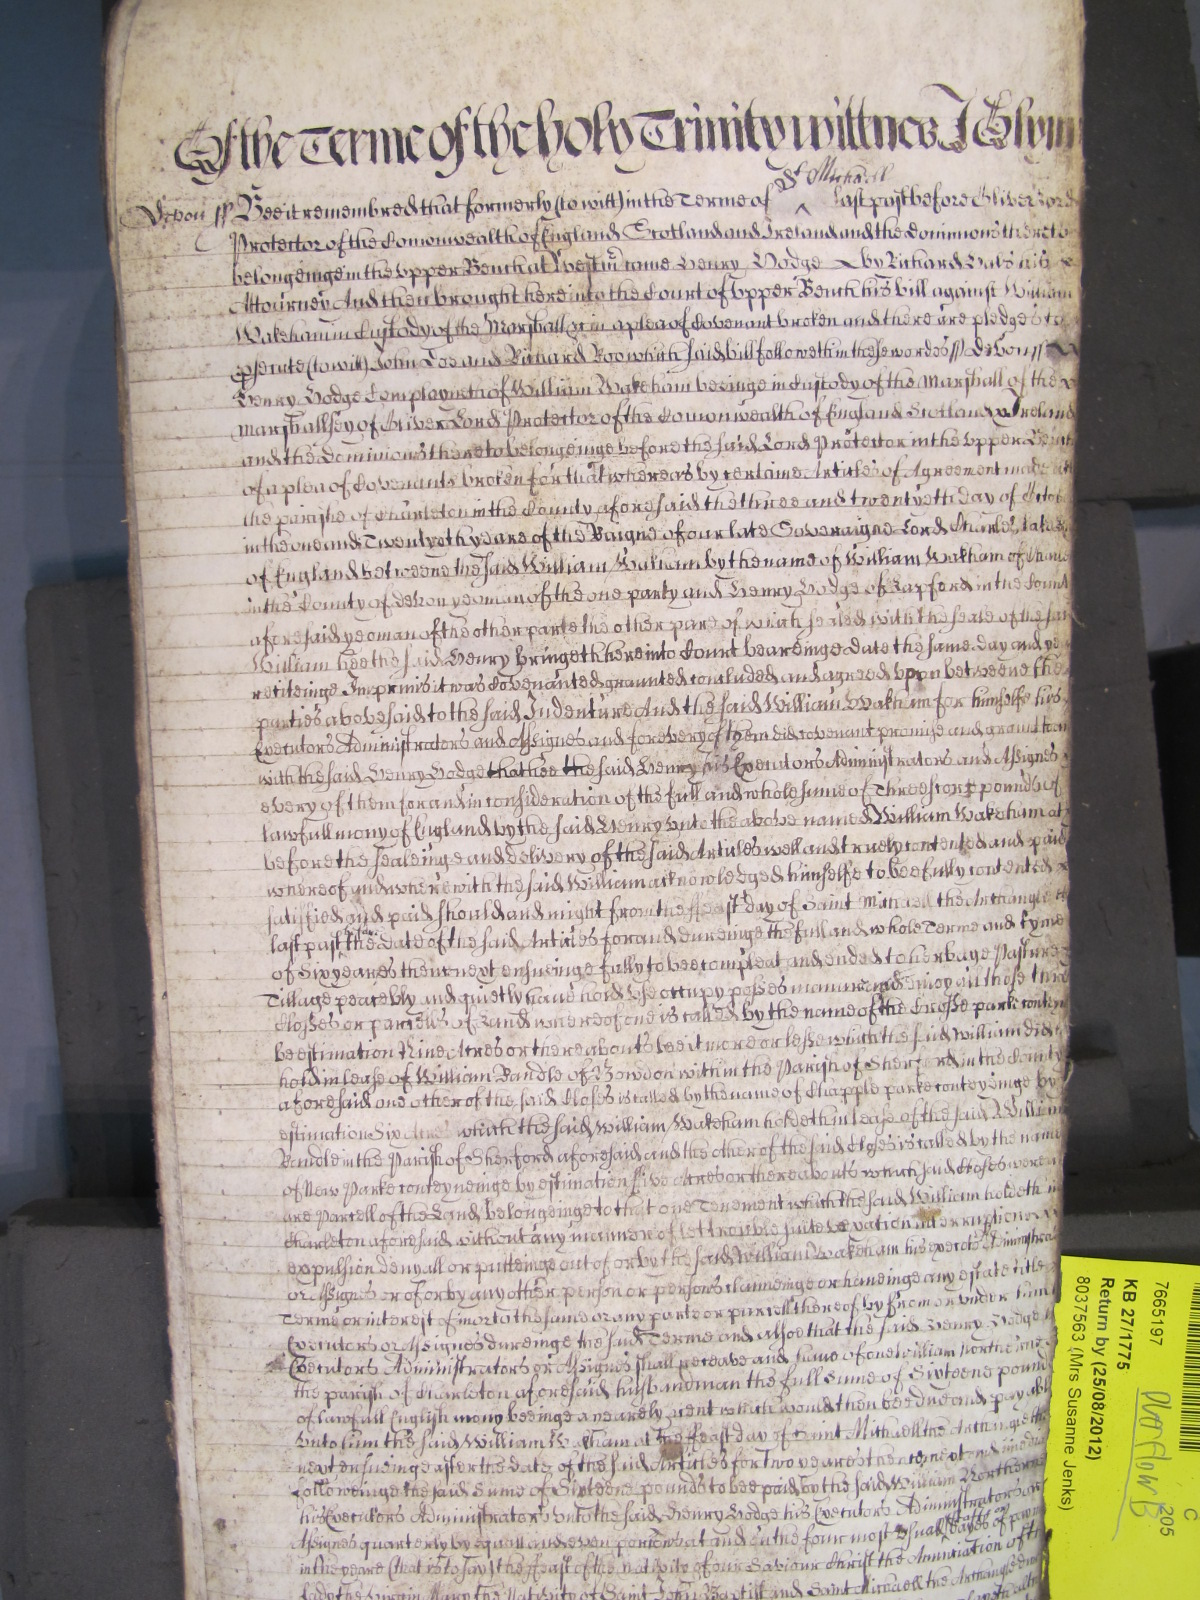 Of the Terme of the holy Trinity wittnes J Glynn
Devon ss Bee it remembred that formerly (to witt) in the Terme of St Michaell last past before Oliver Lord
Protector of the Comonwealth of England Scotland and Ireland and the dominions thereto
belongeinge in the upper Bench at Westm came Henry Dodge by Richard his
Attourney And then brought here into the Court of Upper Bench his bill against William
Wakeham in Custody of the Marshall &c in a plea of Covenant broken and there are pledges to
psecute (to witt) John Doe and Richard Roo which said bill followeth in these wordes ss Devon ss
Henry Dodge Complayneth of William Wakeham beeinge in Custody of the Marshall of the
Marshallsey of Oliver Lord Protector of the Comonwealth of England Scotland & Ireland
and the Dominions thereto belongeinge before the said Lord Protector in the Upper Bench
of a plea of Covenants broken for that whereas by certaine Articles of Agreement made att
the parishe of Charleton in the County aforesaid the three and twentyeth day of Octob
in the one and Twentyeth yeare of the Raigne of our late Soveraigne Lord Charles late
of England betweene the said William Wakham by the name of William Wakham of
in the County of Devon yeoman of the one party and Henry Dodge of in the Count
aforesaid yeoman of the other parte the other part of which sealed with the seale of the sai
William hee the said Henry bringeth here into Court beareinge date the same day and ye
reciteinge Imprimis it was Covenanted graunted concluded and agreed uppon betweene the
parties abovesaid to the said Indenture And the said William Wakham for himselfe his
Executors Administrators and Assignes and for every of them did covenant promise and graunt to an
with the said Henry Dodge that hee the said Henry his Executors Administrators and Assignes
every of them for and in consideration of the full and whole sume of Threescore pounds of
lawfull mony of England by the said Henry unto the above named William Wakeham at
before the sealeinge and delivery of the said Articles well and truely contented and paid
whereof and wherewith the said William acknowledged himselfe to bee fully contented
satisfied and paid should and might from the ffeast day of Saint Michaell the Archangle
last past the date of the said Articles for and dureinge the full and whole Terme and tyme
of Six yeares then next ensueinge fully to bee compleat and ended to herbage Pasture
Tillage peacebly and quietly have hold use occupy posses manure and enioy all those three
Closses or parcells of Land whereof one is called by the name of the Crosse parke
be estimation Nine Acres or thereabouts bee it more or lesse which the said William did
hold in lease of William Randle of Bowdon within the Parish of Sherford in the County
aforesaid one other of the said Closes is called by the name of Chapple parke conteyninge by
estimation Six Acres which the said William Wakeham holdeth in lease of the said William
Randle in the Parish of Sherford aforesaid and the other of the said Closes is called by the name
of New Parke conteyneinge by estimation ffive Acres or thereabouts which said Closes were
are Parcell of the Land belongeinge to that one Tenement which the said William holdeth in
Charleton aforesaid without any manner of lett trouble suite vexation interruption
expulsion denyall or putteinge out of or by the said William Wakeham his execut Administra
or Assignes or of or by any other person or persons claimeinge or haveinge any estate title
Terme or interest of in or to the same or any parte or parcell thereof by from or under him
Executors or Assignes dureinge the said Terme and alsoe that the said Henry Dodge
Executors Administrators or Assignes shall receave and have of one William
the parish of Charleton aforesaid husbandman the full Sume of Sixteene pound
of lawfull English mony beeinge a yearely rent which would then bee due and payabl
unto him the said William Wakham at the ffeast day of Saint Michaell the Archangle
next ensueinge after the date of the said Articles for two yeares then next and
followeinge the said Sume of Sixteene pounds to bee paid by the said William
his Executors Administrators unto the said Henry Dodge his Executors Administrators or
Assignes quarterly by equall and even porcions att and in the four most usuall dayes of paym
in the yeare (that is to say) the ffeast of the nativite of our Saviour Christ the Annunciation of
Lady the Virgin Mary the Nativity of Saint John Baptist and Saint Michaell the Archangle
7665197
KB 27/1775
Return by (25/08/2012)
8037563 (Mrs Susanne Jenks)
C
205